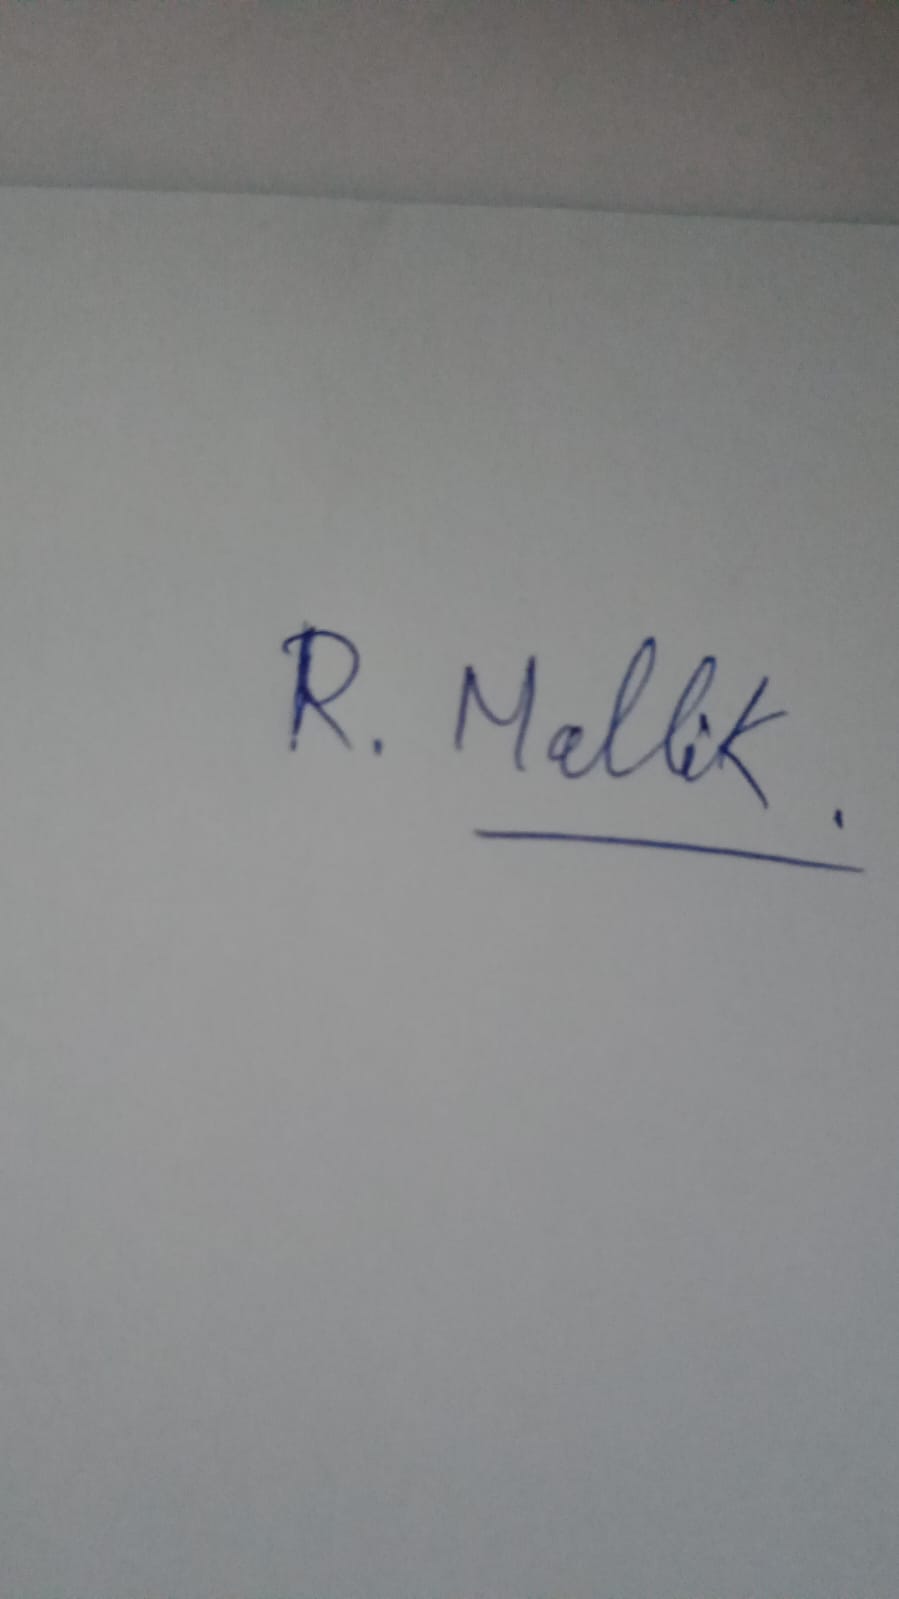 R. Mallik.